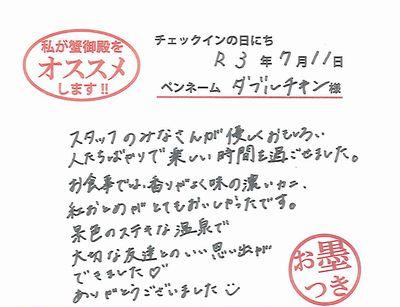 私が蟹御殿を
オススメ
します!!
チェックインの日にち
R3年7月11日
ペンネーム ダブルチャン様
スタッフのみなさんが優しくおもしろい
人たちばかりで楽しい時間を過ごせました。
お食事では、香りがよく味の濃いカニ、
紅おとめがとてもおいしかったです。
景色のステキな温泉で
大切な友達とのいい思い出が
できました♡
ありがとうございました
お墨
つき